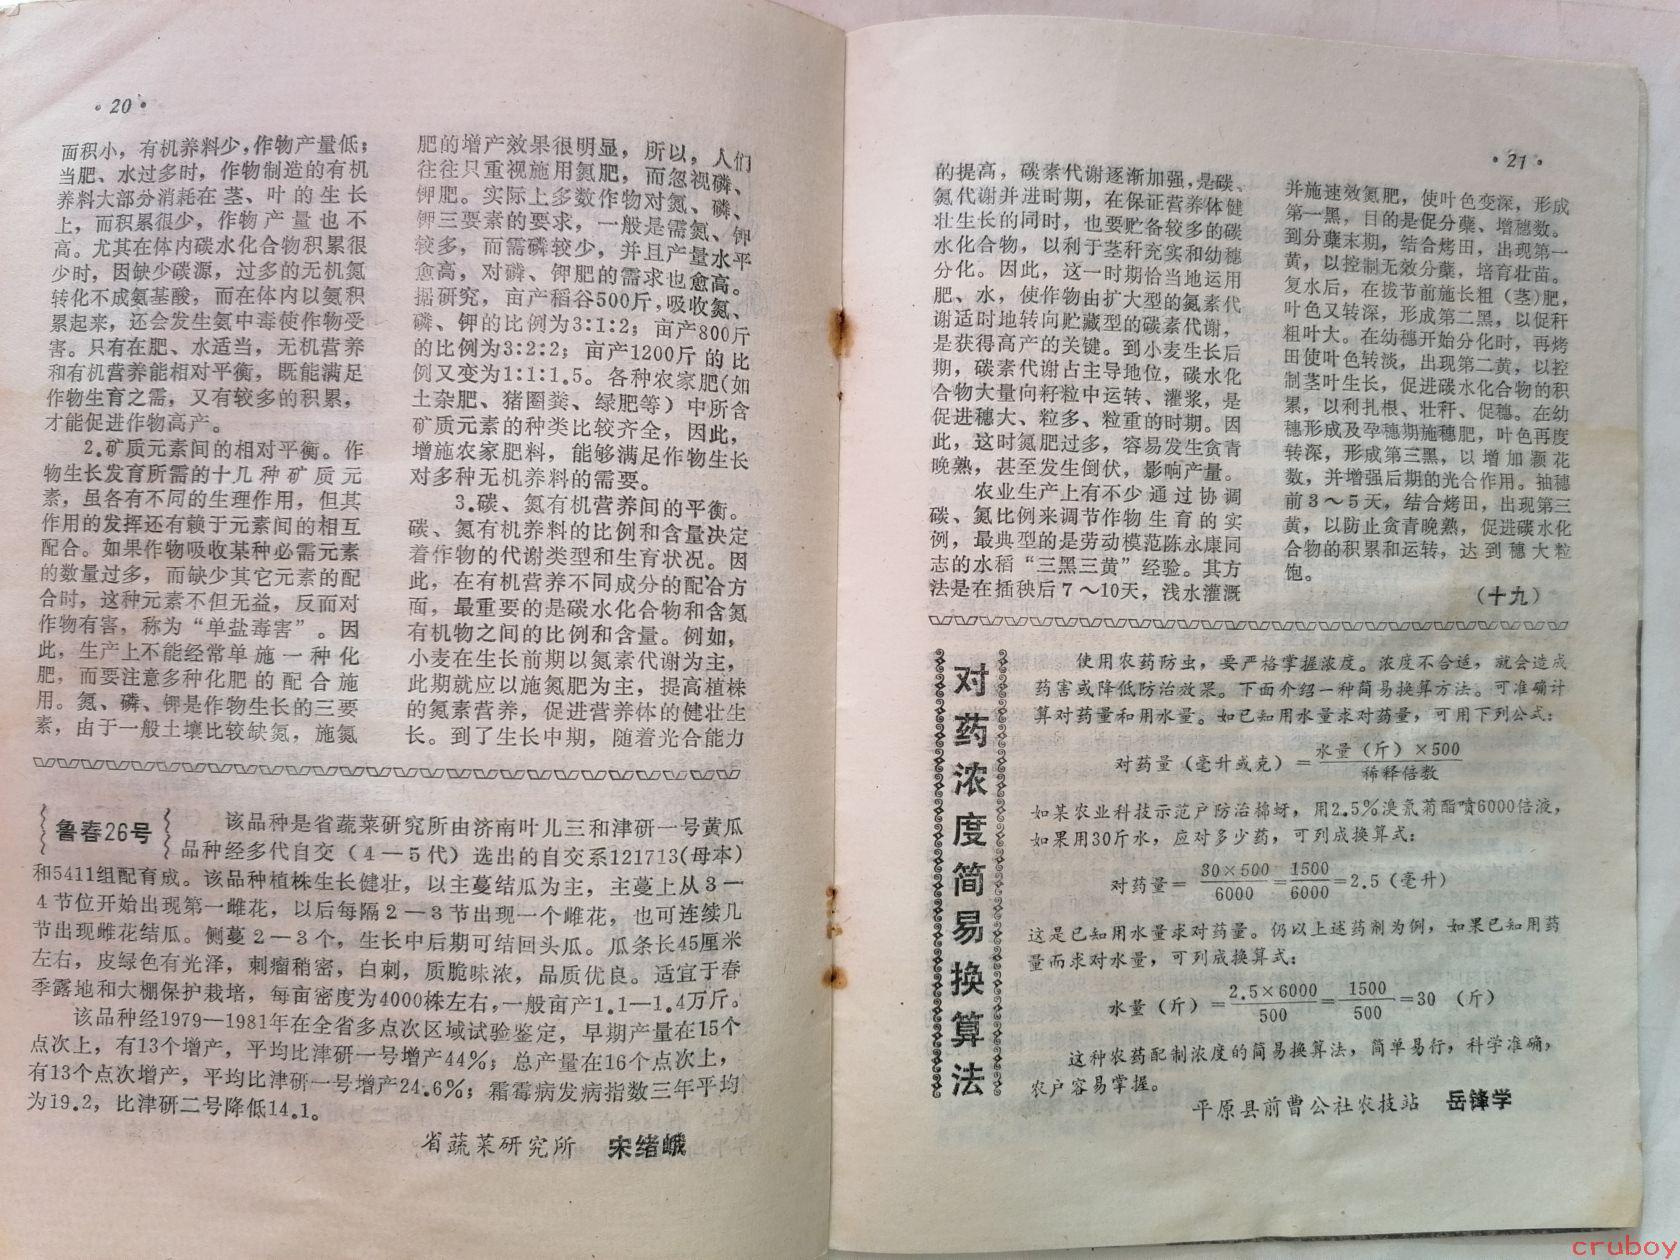 • 20 •
面积小，有机养料少，作物产量低；
当肥、水过多时，作物制造的有机
养料大部分消耗在茎、叶的生长
上，而积累很少，作物产量也不
高。尤其在体内碳水化合物积累很
少时，因缺少碳源，过多的无机氮
转化不成氨基酸，而在体内以氨积
累起来，还会发生氨中毒使作物受
害。只有在肥、水适当，无机营养
和有机营养能相对平衡，既能满足
作物生育之需，又有较多的积累，
才能促进作物高产。
2.矿质元素间的相对平衡。作
物生长发育所需的十几种矿质元
素，虽各有不同的生理作用，但其
作用的发挥还有赖于元素间的相互
配合。如果作物吸收某种必需元素
的数量过多，而缺少其它元素的配
合时，这种元素不但无益，反而对
作物有害，称为“单盐毒害”。因
此，生产上不能经常单施一种化
肥，而要注意多种化肥的配合施
用。氮、磷、钾是作物生长的三要
素，由于一般土壤比较缺氮，施氮
肥的增产效果很明显，所以，人们
往往只重视施用氮肥，而忽视磷、
钾肥。实际上多数作物对氮、磷、
钾三要素的要求，一般是需氮、钾
较多，而需磷较少，并且产量水平
愈高，对磷、钾肥的需求也愈高。
据研究，亩产稻谷500斤，吸收氮、
磷、钾的比例为3:1:2；亩产800斤
的比例为3:2:2；亩产1200斤的比
例又变为1:1:1.5。各种农家肥(如
土杂肥、猪圈粪、绿肥等）中所含
矿质元素的种类比较齐全，因此，
增施农家肥料，能够满足作物生长
对多种无机养料的需要。
3.碳、氮有机营养间的平衡。
碳、氮有机养料的比例和含量决定
着作物的代谢类型和生育状况。因
此，在有机营养不同成分的配合方
面，最重要的是碳水化合物和含氮
有机物之间的比例和含量。例如，
小麦在生长前期以氮素代谢为主，
此期就应以施氮肥为主，提高植株
的氮素营养，促进营养体的健壮生
长。到了生长中期，随着光合能力
鲁春26号
该品种是省蔬菜研究所由济南叶儿三和津研一号黄瓜
品种经多代自交（4—5代）选出的自交系121713(母本）
和5411组配育成。该品种植株生长健壮，以主蔓结瓜为主，主蔓上从3—
4节位开始出现第一雌花，以后每隔2—3节出现一个雌花，也可连续几
节出现雌花结瓜。侧蔓2—3个，生长中后期可结回头瓜。瓜条长45厘米
左右，皮绿色有光泽，刺瘤稍密，白刺，质脆味浓，品质优良。适宜于春
季露地和大棚保护栽培，每亩密度为4000株左右，一般亩产1.1—1.4万斤。
该品种经1979—1981年在全省多点次区域试验鉴定，早期产量在15个
点次上，有13个增产，平均比津研一号增产44%；总产量在16个点次上，
有13个点次增产，平均比津研一号增产24.6%；霜霉病发病指数三年平均
为19.2，比津研二号降低14.1。
省蔬菜研究所 宋绪峨
• 21 •
的提高，碳素代谢逐渐加强，是碳、
氮代谢并进时期，在保证营养体健
壮生长的同时，也要贮备较多的碳
水化合物，以利于茎秆充实和幼穗
分化。因此，这一时期恰当地运用
肥、水，使作物由扩大型的氮素代
谢适时地转向贮藏型的碳素代谢，
是获得高产的关键。到小麦生长后
期，碳素代谢占主导地位，碳水化
合物大量向籽粒中运转、灌浆，是
促进穗大、粒多、粒重的时期。因
此，这时氮肥过多，容易发生贪青
晚熟，甚至发生倒伏，影响产量。
农业生产上有不少通过协调
碳、氮比例来调节作物生育的实
例，最典型的是劳动模范陈永康同
志的水稻“三黑三黄”经验。其方
法是在插秧后7～10天，浅水灌溉
并施速效氮肥，使叶色变深，形成
第一黑，目的是促分蘖、增穗数。
到分蘖末期，结合烤田，出现第一
黄，以控制无效分蘖，培育壮苗。
复水后，在拔节前施长粗（茎)肥，
叶色又转深，形成第二黑，以促秆
粗叶大。在幼穗开始分化时，再烤
田使叶色转淡，出现第二黄，以控
制茎叶生长，促进碳水化合物的积
累，以利扎根、壮秆、促穗。在幼
穗形成及孕穗期施穗肥，叶色再度
转深，形成第三黑，以增加颖花
数，并增强后期的光合作用。抽穗
前3～5天，结合烤田，出现第三
黄，以防止贪青晚熟，促进碳水化
合物的积累和运转，达到穗大粒
饱。
（十九）
对药浓度简易换算法
使用农药防虫，要严格掌握浓度。浓度不合适，就会造成
药害或降低防治效果。下面介绍一种简易换算方法。可准确计
算对药量和用水量。如已知用水量求对药量，可用下列公式：
对药量（毫升或克）=水量（斤）×500/稀释倍数
如某农业科技示范户防治棉蚜，用2.5%溴氰菊酯喷6000倍液，
如果用30斤水，应对多少药，可列成换算式：
对药量=30×500/6000=1500/6000=2.5（毫升）
这是已知用水量求对药量。仍以上述药剂为例，如果已知用药
量而求对水量，可列成换算式：
水量（斤）=2.5×6000/500=1500/500=30（斤）
这种农药配制浓度的简易换算法，简单易行，科学准确，
农户容易掌握。
平原县前曹公社农技站 岳锋学
cruboy